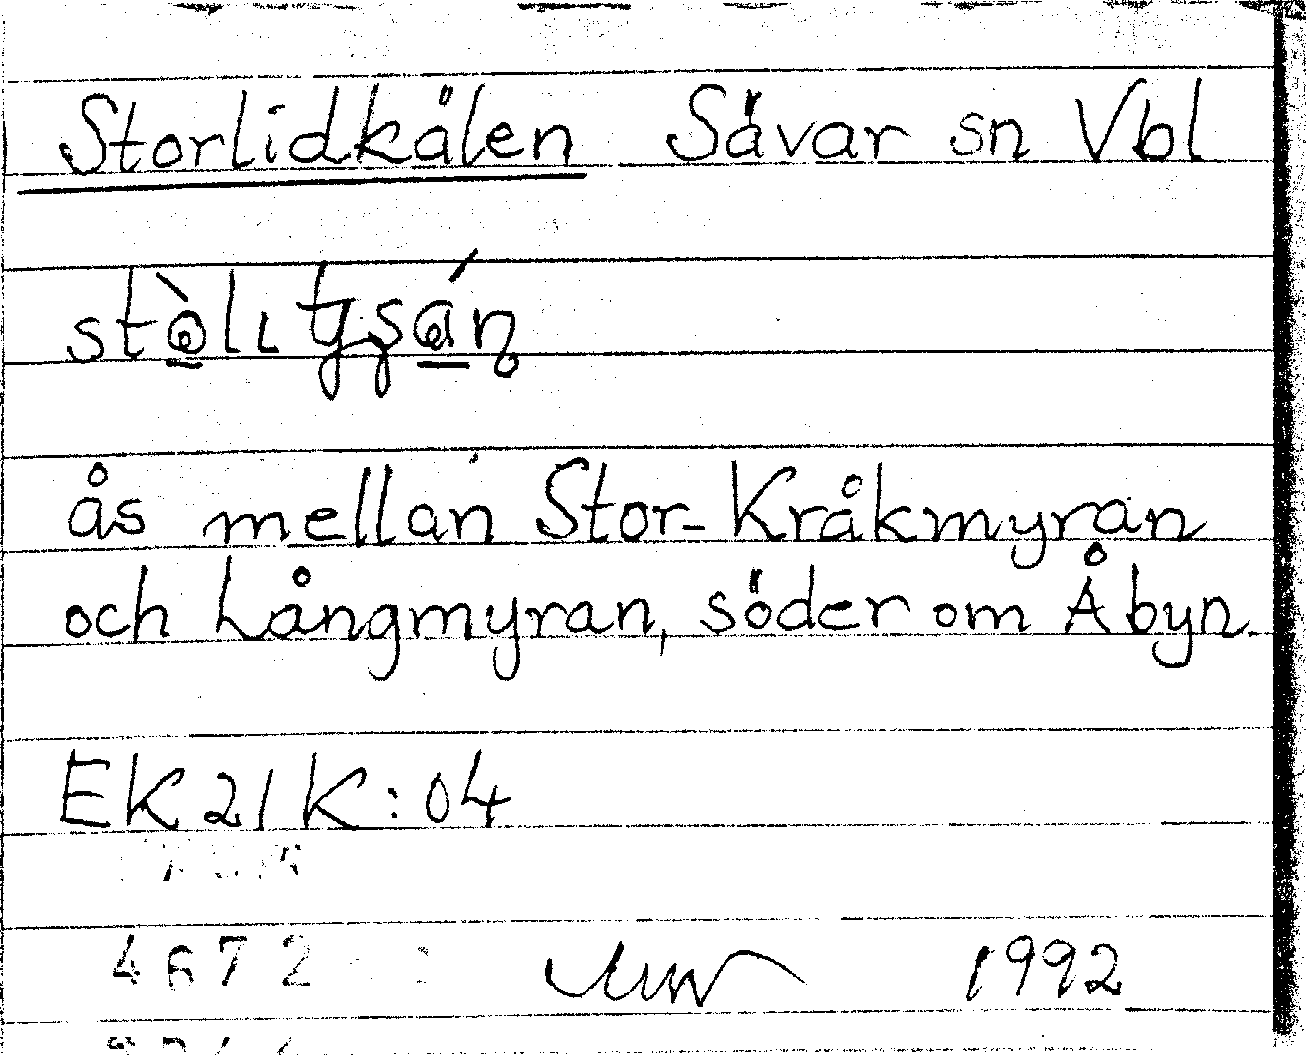 Storlidkålen Sävar sn Vbl
ås mellan Stor-Kråkmyran
och Långmyran, söder om Åbyn.
EK 21 K:04
4672
1992